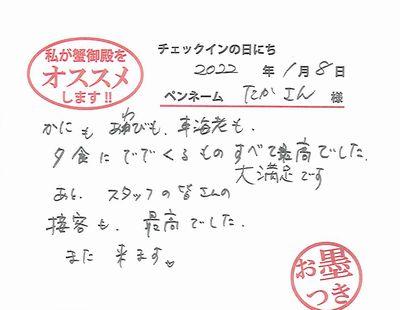 私が蟹御殿を
オススメ
します!!
チェックインの日にち
2022 年 1 月 8 日
ペンネーム たかさん 様
かにも あわびも、車海老も、
夕食にでてくるものすべて最高でした。
大満足です
あと、スタッフの皆さんの
接客も、最高でした。
また 来ます♡
お墨
つき